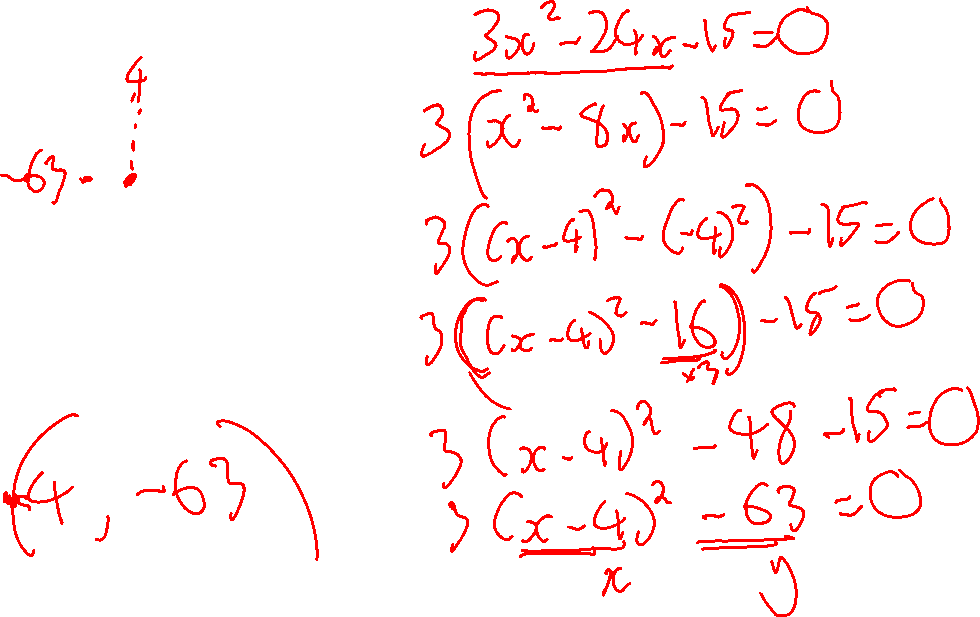 3x² - 24x - 15 = 0
3(x² - 8x) - 15 = 0
3((x - 4)² - (-4)²) - 15 = 0
3((x - 4)² - 16) - 15 = 0
×3
3(x - 4)² - 48 - 15 = 0
3(x - 4)² - 63 = 0
x y
4
-63
(4, -63)